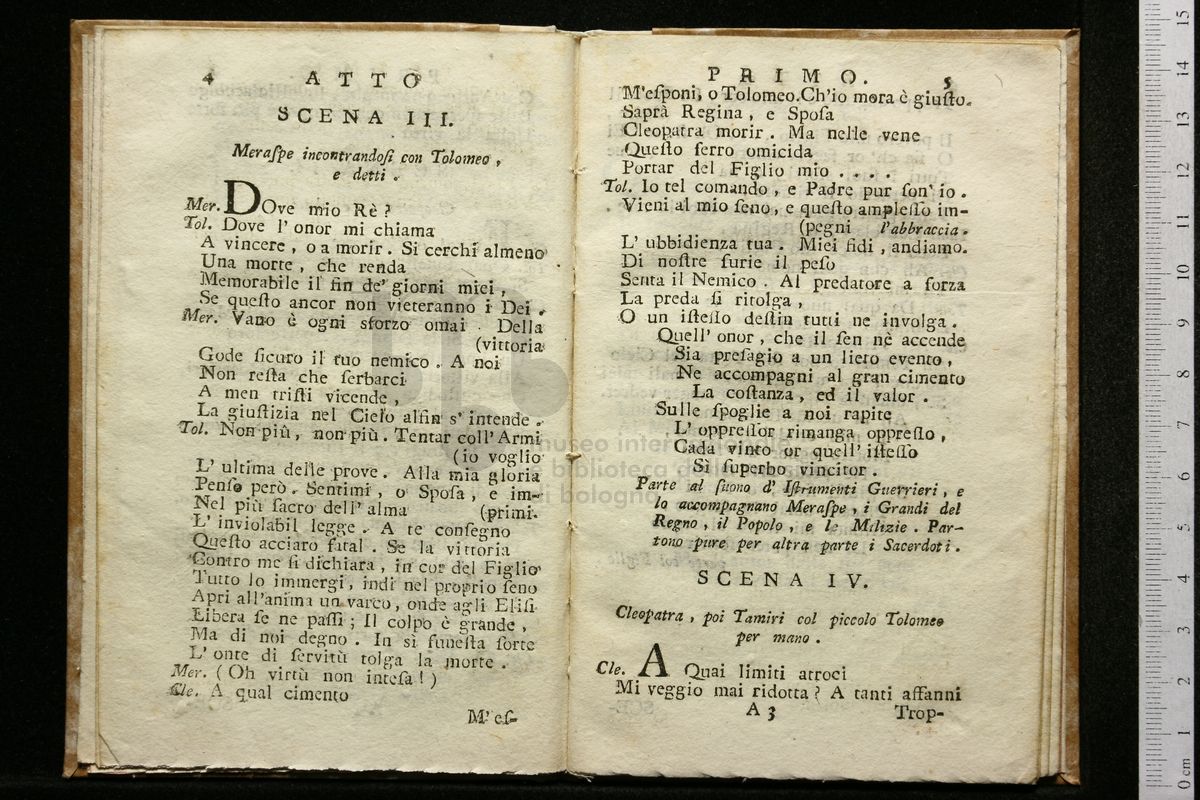 4 ATTO
SCENA III.
Meraſpe incontrandoſi con Tolomeo,
e detti.
Mer. DOve mio Rè?
Tol. Dove l'onor mi chiama
A vincere, o a morir. Si cerchi almeno
Una morte, che renda
Memorabile il fin de' giorni miei,
Se queſto ancor non vieteranno i Dei.
Mer. Vano è ogni sforzo omai. Della
(vittoria
Gode ſicuro il tuo nemico. A noi
Non reſta che ſerbarci
A men triſti vicende,
La giuſtizia nel Cielo alfin s'intende.
Tol. Non più, non più. Tentar coll'Armi
(io voglio
L'ultima delle prove. Alla mia gloria
Penſo però. Sentimi, o Spoſa, e im-
Nel più ſacro dell'alma (primi.
L'inviolabil legge. A te conſegno
Queſto acciaro fatal. Se la vittoria
Contro me ſi dichiara, in cor del Figlio
Tutto lo immergi, indi nel proprio ſeno
Apri all'anima un varco, onde agli Eliſi
Libera ſe ne paſſi; Il colpo è grande,
Ma di noi degno. In sì funeſta ſorte
L'onte di ſervitù tolga la morte.
Mer. (Oh virtù non inteſa!)
Cle. A qual cimento
M'eſ-
PRIMO. 5
M'eſponi, o Tolomeo. Ch'io mora è giuſto.
Saprà Regina, e Spoſa
Cleopatra morir. Ma nelle vene
Queſto ferro omicida
Portar del Figlio mio ....
Tol. Io tel comando, e Padre pur ſon'io.
Vieni al mio ſeno, e queſto ampleſſo im-
(pegni l'abbraccia.
L'ubbidienza tua. Miei fidi, andiamo.
Di noſtre furie il peſo
Senta il Nemico. Al predatore a forza
La preda ſi ritolga,
O un iſteſſo deſtin tutti ne involga.
Quell'onor, che il ſen nè accende
Sia preſagio a un lieto evento,
Ne accompagni al gran cimento
La coſtanza, ed il valor.
Sulle ſpoglie a noi rapite
L'oppreſſor rimanga oppreſſo,
Cada vinto or quell'iſteſſo
Sì ſuperbo vincitor.
Parte al ſuono d'Iſtrumenti Guerrieri, e
lo accompagnano Meraſpe, i Grandi del
Regno, il Popolo, e le Milizie. Par-
tono pure per altra parte i Sacerdoti.
SCENA IV.
Cleopatra, poi Tamiri col piccolo Tolomeo
per mano.
Cle. A Quai limiti atroci
Mi veggio mai ridotta? A tanti affanni
A 3 Trop-